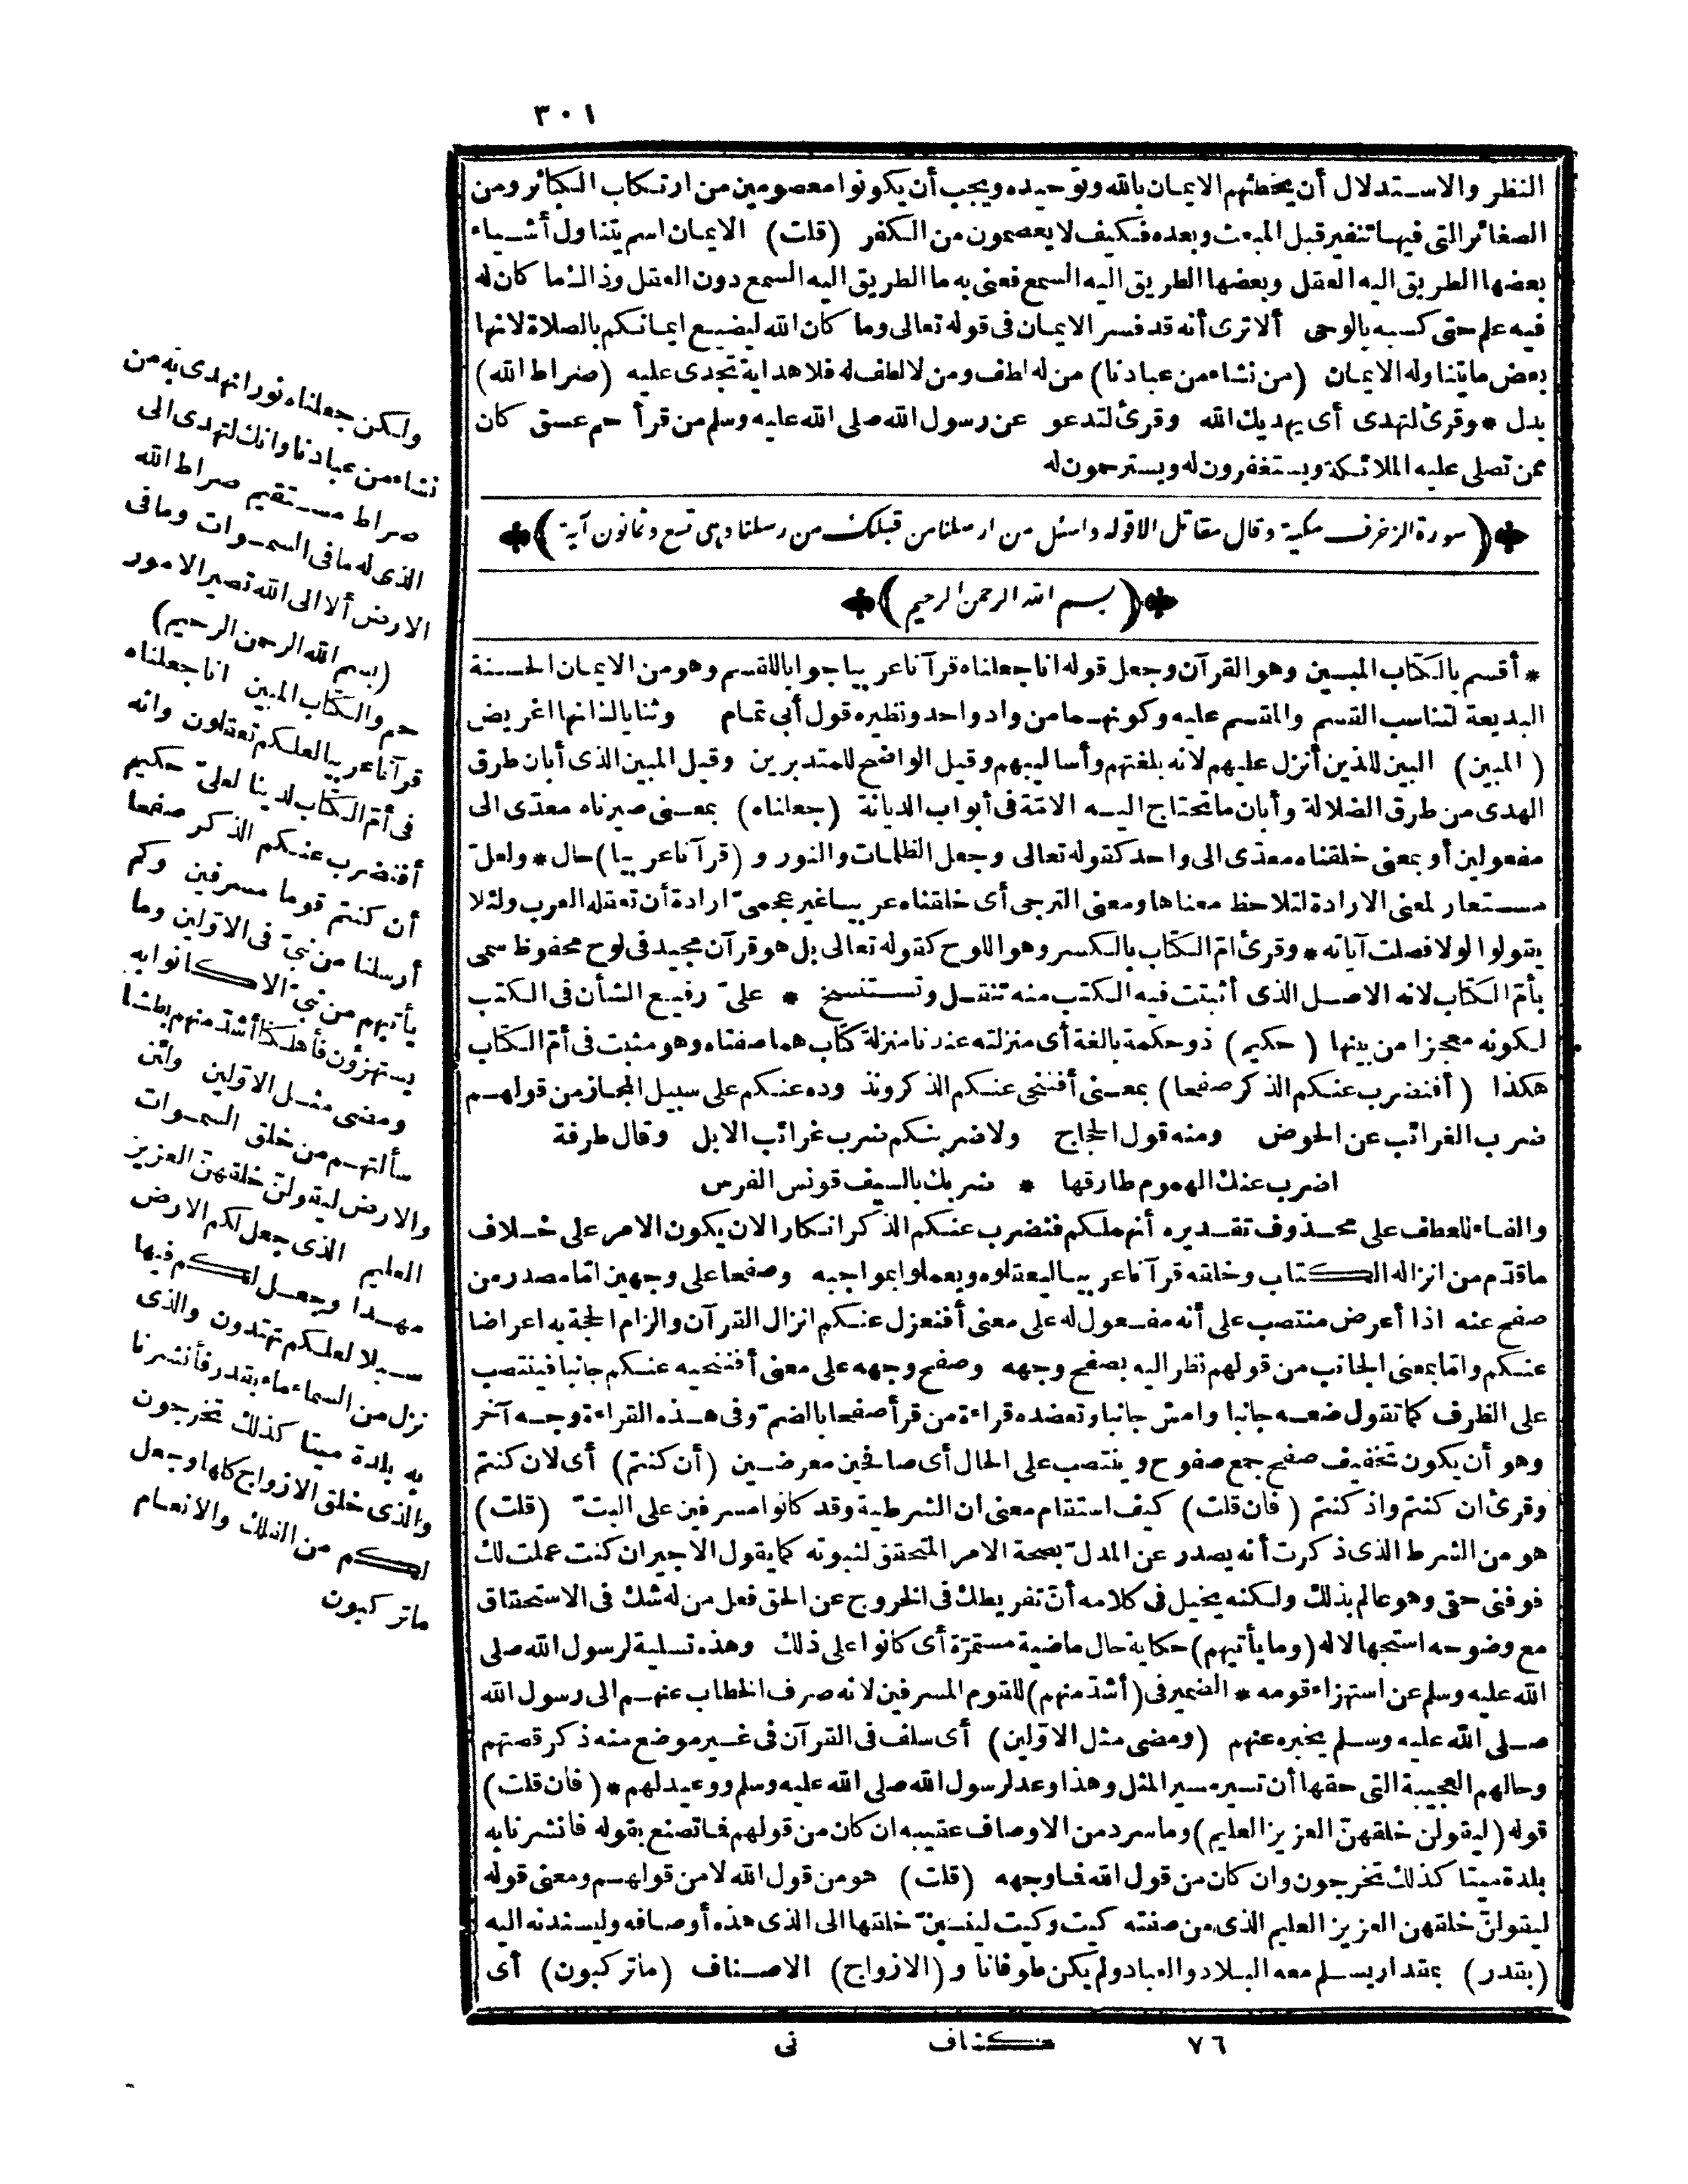 ٣٠١
النظر والاستدلال أن يخطئهم الايمان بالله وتوحيده ويجب أن يكونوا معصومين من ارتكاب الكبائر ومن
الصغائر التى فيها تنفير قبل المبعث وبعده فكيف لا يعصمون من الكفر (قلت) الايمان اسم يتناول أشياء
بعضها الطريق اليه العقل وبعضها الطريق اليه السمع فعنى به ما الطريق اليه السمع دون العقل وذاك ما كان له
فيه علم حتى كسبه بالوحى ألا ترى أنه قد فسر الايمان فى قوله تعالى وما كان الله ليضيع ايمانكم بالصلاة لانها
بعض ما يتناوله الايمان (من نشاء من عبادنا) من له لطف ومن لا لطف له فلا هداية تجدى عليه (صراط الله)
بدل * وقرئ لتهدى أى يهديك الله وقرئ لتدعو عن رسول الله صلى الله عليه وسلم من قرأ حم عسق كان
ممن تصلى عليه الملائكة ويستغفرون له ويسترحمون له
﴿سورة الزخرف مكية وقال مقاتل الا قوله واسئل من ارسلنا من قبلك من رسلنا وهى تسع وثمانون آية﴾
﴿بسم الله الرحمن الرحيم﴾
* أقسم بالكتاب المبين وهو القرآن وجعل قوله انا جعلناه قرآنا عربيا جوابا للقسم وهو من الايمان الحسنة
البديعة لتناسب القسم والمقسم عليه وكونهما من واد واحد ونظيره قول أبى تمام وثناياك انها اغريض
(المبين) البين للذين أنزل عليهم لانه بلغتهم وأساليبهم وقيل الواضح للمتدبرين وقيل المبين الذى أبان طرق
الهدى من طرق الضلالة وأبان ما تحتاج اليه الامّة فى أبواب الديانة (جعلناه) بمعنى صيرناه معدّى الى
مفعولين أو بمعنى خلقناه معدّى الى واحد كقوله تعالى وجعل الظلمات والنور و (قرآنا عربيا) حال * ولعلّ
مستعار لمعنى الارادة لتلاحظ معناها ومعنى الترجى أى خلقناه عربيا غير عجمىّ ارادة أن تعقله العرب ولئلا
يقولوا لولا فصلت آياته * وقرئ امّ الكتاب بالكسر وهو اللوح كقوله تعالى بل هو قرآن مجيد فى لوح محفوظ سمى
بأمّ الكتاب لانه الاصل الذى أثبتت فيه الكتب منه تنقل وتستنسخ * علىّ رفيع الشأن فى الكتب
لكونه معجزا من بينها (حكيم) ذو حكمة بالغة أى منزلته عندنا منزلة كتاب هما صفتاه وهو مثبت فى أمّ الكتاب
هكذا (أفنضرب عنكم الذكر صفحا) بمعنى أفننحى عنكم الذكر ونذوده عنكم على سبيل المجاز من قولهم
ضرب الغرائب عن الحوض ومنه قول الحجاج ولاضربنكم ضرب غرائب الابل وقال طرفة
اضرب عنك الهموم طارقها * ضربك بالسيف قونس الفرس
والفاء للعطف على محذوف تقديره أنهملكم فنضرب عنكم الذكر انكارا لان يكون الامر على خلاف
ما قدّم من انزاله الكتاب وخلقه قرآنا عربيا ليعقلوه ويعملوا بمواجبه وصفحا على وجهين امّا مصدر من
صفح عنه اذا أعرض منتصب على أنه مفعول له على معنى أفنعزل عنكم انزال القرآن والزام الحجة به اعراضا
عنكم وامّا بمعنى الجانب من قولهم نظر اليه بصفح وجهه وصفح وجهه على معنى أفننحيه عنكم جانبا فينتصب
على الظرف كما تقول ضعه جانبا وامش جانبا وتعضده قراءة من قرأ صفحا بالضمّ وفى هذه القراءة وجه آخر
وهو أن يكون تخفيف صفح جمع صفوح وينتصب على الحال أى صافحين معرضين (أن كنتم) أى لان كنتم
وقرئ ان كنتم واذ كنتم (فان قلت) كيف استقام معنى ان الشرطية وقد كانوا مسرفين على البتّ (قلت)
هو من الشرط الذى ذكرت أنه يصدر عن المدلّ بصحة الامر المتحقق لثبوته كما يقول الاجير ان كنت عملت لك
فوفنى حقى وهو عالم بذلك ولكنه يخيل فى كلامه أنّ تفريطك فى الخروج عن الحق فعل من له شك فى الاستحقاق
مع وضوحه استجهالا له (وما يأتيهم) حكاية حال ماضية مستمرّة أى كانوا على ذلك وهذه تسلية لرسول الله صلى
الله عليه وسلم عن استهزاء قومه * الضمير فى (أشدّ منهم) للقوم المسرفين لانه صرف الخطاب عنهم الى رسول الله
صلى الله عليه وسلم يخبره عنهم (ومضى مثل الاوّلين) أى سلف فى القرآن فى غير موضع منه ذكر قصتهم
وحالهم العجيبة التى حقها أن تسير مسير المثل وهذا وعد لرسول الله صلى الله عليه وسلم ووعيد لهم * (فان قلت)
قوله (ليقولن خلقهنّ العزيز العليم) وما سرد من الاوصاف عقيبه ان كان من قولهم فما تصنع بقوله فأنشرنا به
بلدة ميتا كذلك تخرجون وان كان من قول الله فما وجهه (قلت) هو من قول الله لا من قولهم ومعنى قوله
ليقولنّ خلقهن العزيز العليم الذى من صفته كيت وكيت لينسبنّ خلقها الى الذى هذه أوصافه وليسندنه اليه
(بقدر) بمقدار يسلم معه البلاد والعباد ولم يكن طوفانا و (الازواج) الاصناف (ما تركبون) أى
ولكن جعلناه نورا نهدى به من
نشاء من عبادنا وانك لتهدى الى
صراط مستقيم صراط الله
الذى له ما فى السموات وما فى
الارض ألا الى الله تصير الامور
(بسم الله الرحمن الرحيم)
حم والكتاب المبين انا جعلناه
قرآنا عربيا لعلكم تعقلون وانه
فى أمّ الكتاب لدينا لعلىّ حكيم
أفنضرب عنكم الذكر صفحا
أن كنتم قوما مسرفين وكم
أرسلنا من نبىّ فى الاوّلين وما
يأتيهم من نبىّ الا كانوا به
يستهزؤن فأهلكنا أشدّ منهم بطشا
ومضى مثل الاوّلين ولئن
سألتهم من خلق السموات
والارض ليقولنّ خلقهنّ العزيز
العليم الذى جعل لكم الارض
مهدا وجعل لكم فيها
سبلا لعلكم تهتدون والذى
نزل من السماء ماء بقدر فأنشرنا
به بلدة ميتا كذلك تخرجون
والذى خلق الازواج كلها وجعل
لكم من الفلك والانعام
ما تركبون
٧٦ كشاف نى